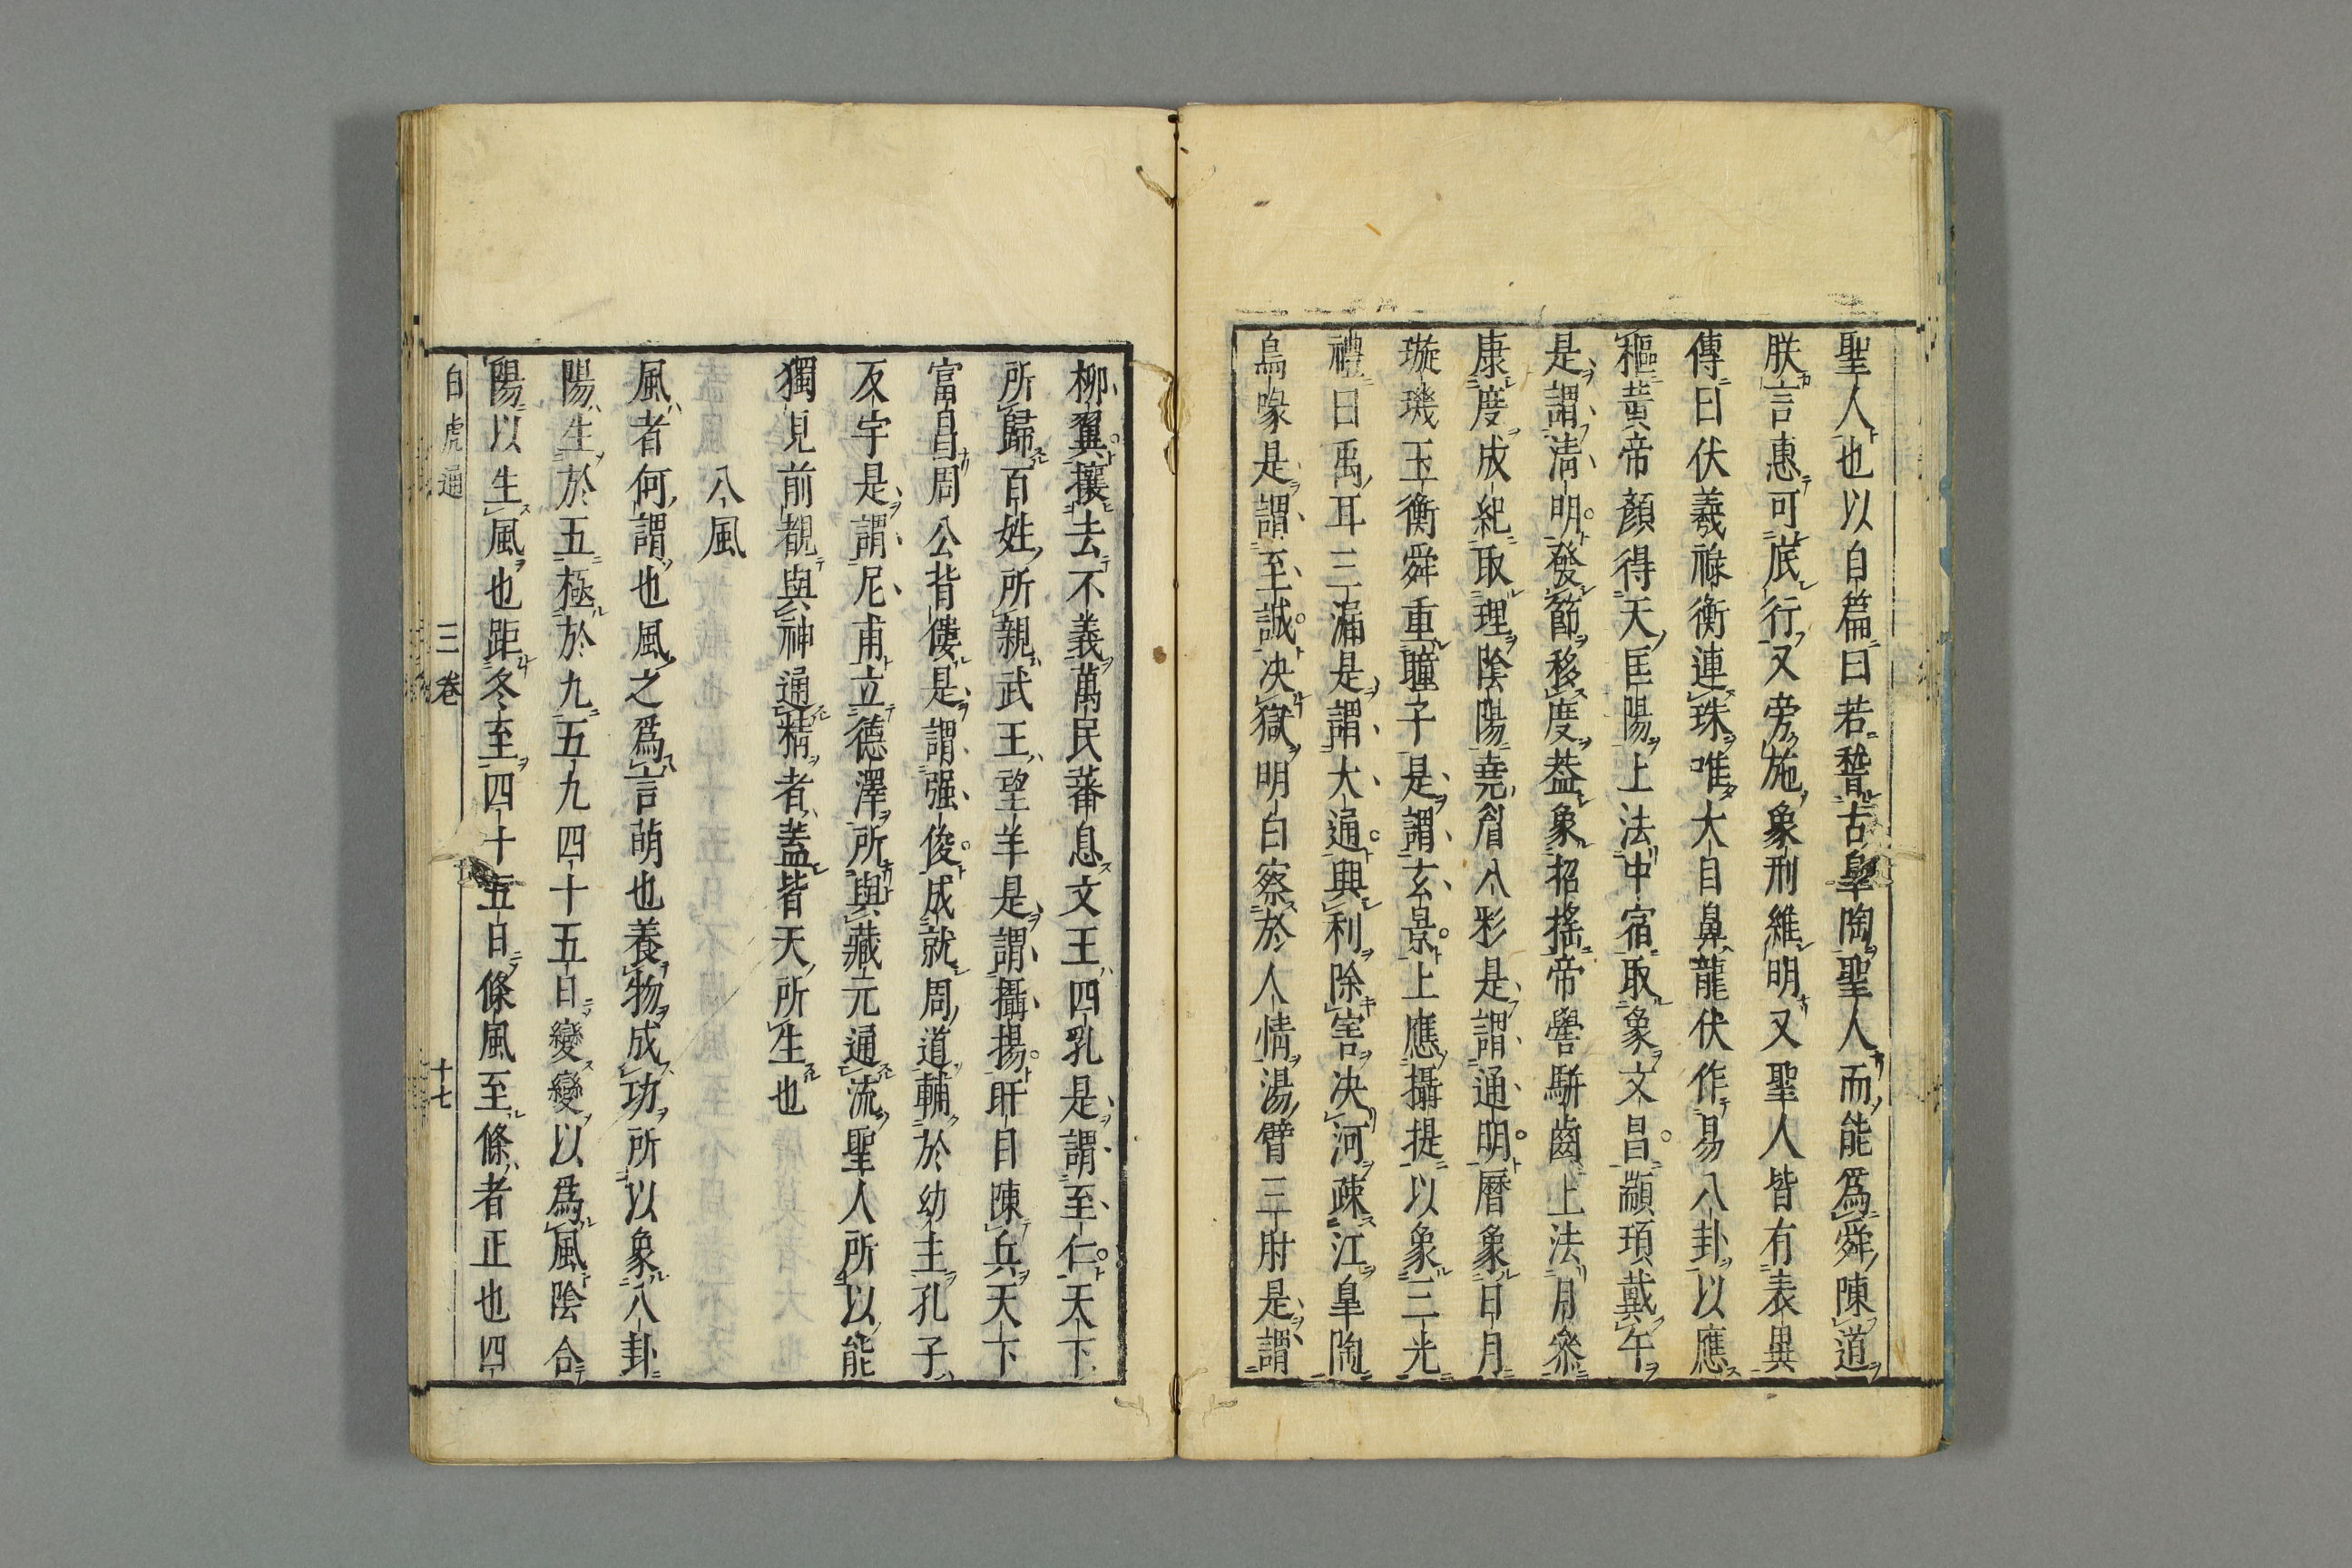 聖人也以自篇曰若稽古皐陶聖人而能爲舜陳道
朕言惠可底行又旁施象刑維明又聖人皆有表異
傳曰伏羲祿衡連珠唯大目鼻龍伏作易八卦以應
樞黃帝顏得天匡陽上法中宿取象文昌顓頊戴午
是謂淸明發節移度葢象招搖帝嚳駢齒上法月參
康度成紀取理陰陽堯眉八彩是謂通明曆象日月
璇璣玉衡舜重瞳子是謂玄景上應攝提以象三光
禮曰禹耳三漏是謂大通興利除害决河疎江皐陶
鳥喙是謂至誠决獄明白察於人情湯臂三肘是謂
柳翼攘去不義萬民蕃息文王四乳是謂至仁天下
所歸百姓所親武王望羊是謂攝揚盱目陳兵天下
富昌周公背僂是謂强俊成就周道輔於幼主孔子
反宇是謂尼甫立德澤所與藏元通流聖人所以能
獨見前覩與神通精者蓋皆天所生也
八風
風者何謂也風之爲言萌也養物成功所以象八卦
陽生於五極於九五九四十五日變變以爲風陰合
陽以生風也距冬至四十五日條風至條者正也四
白虎通 三卷 十七